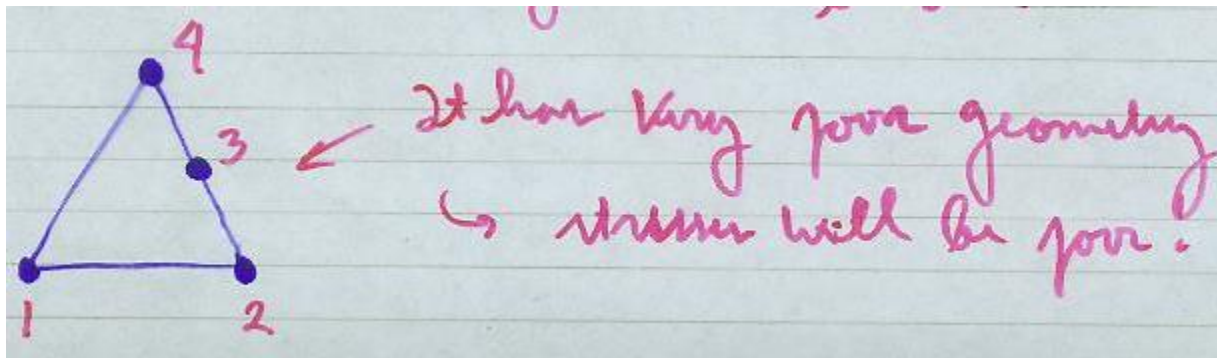 4
3
It has Very poor geometry
↳ stresses will be poor.
1 2